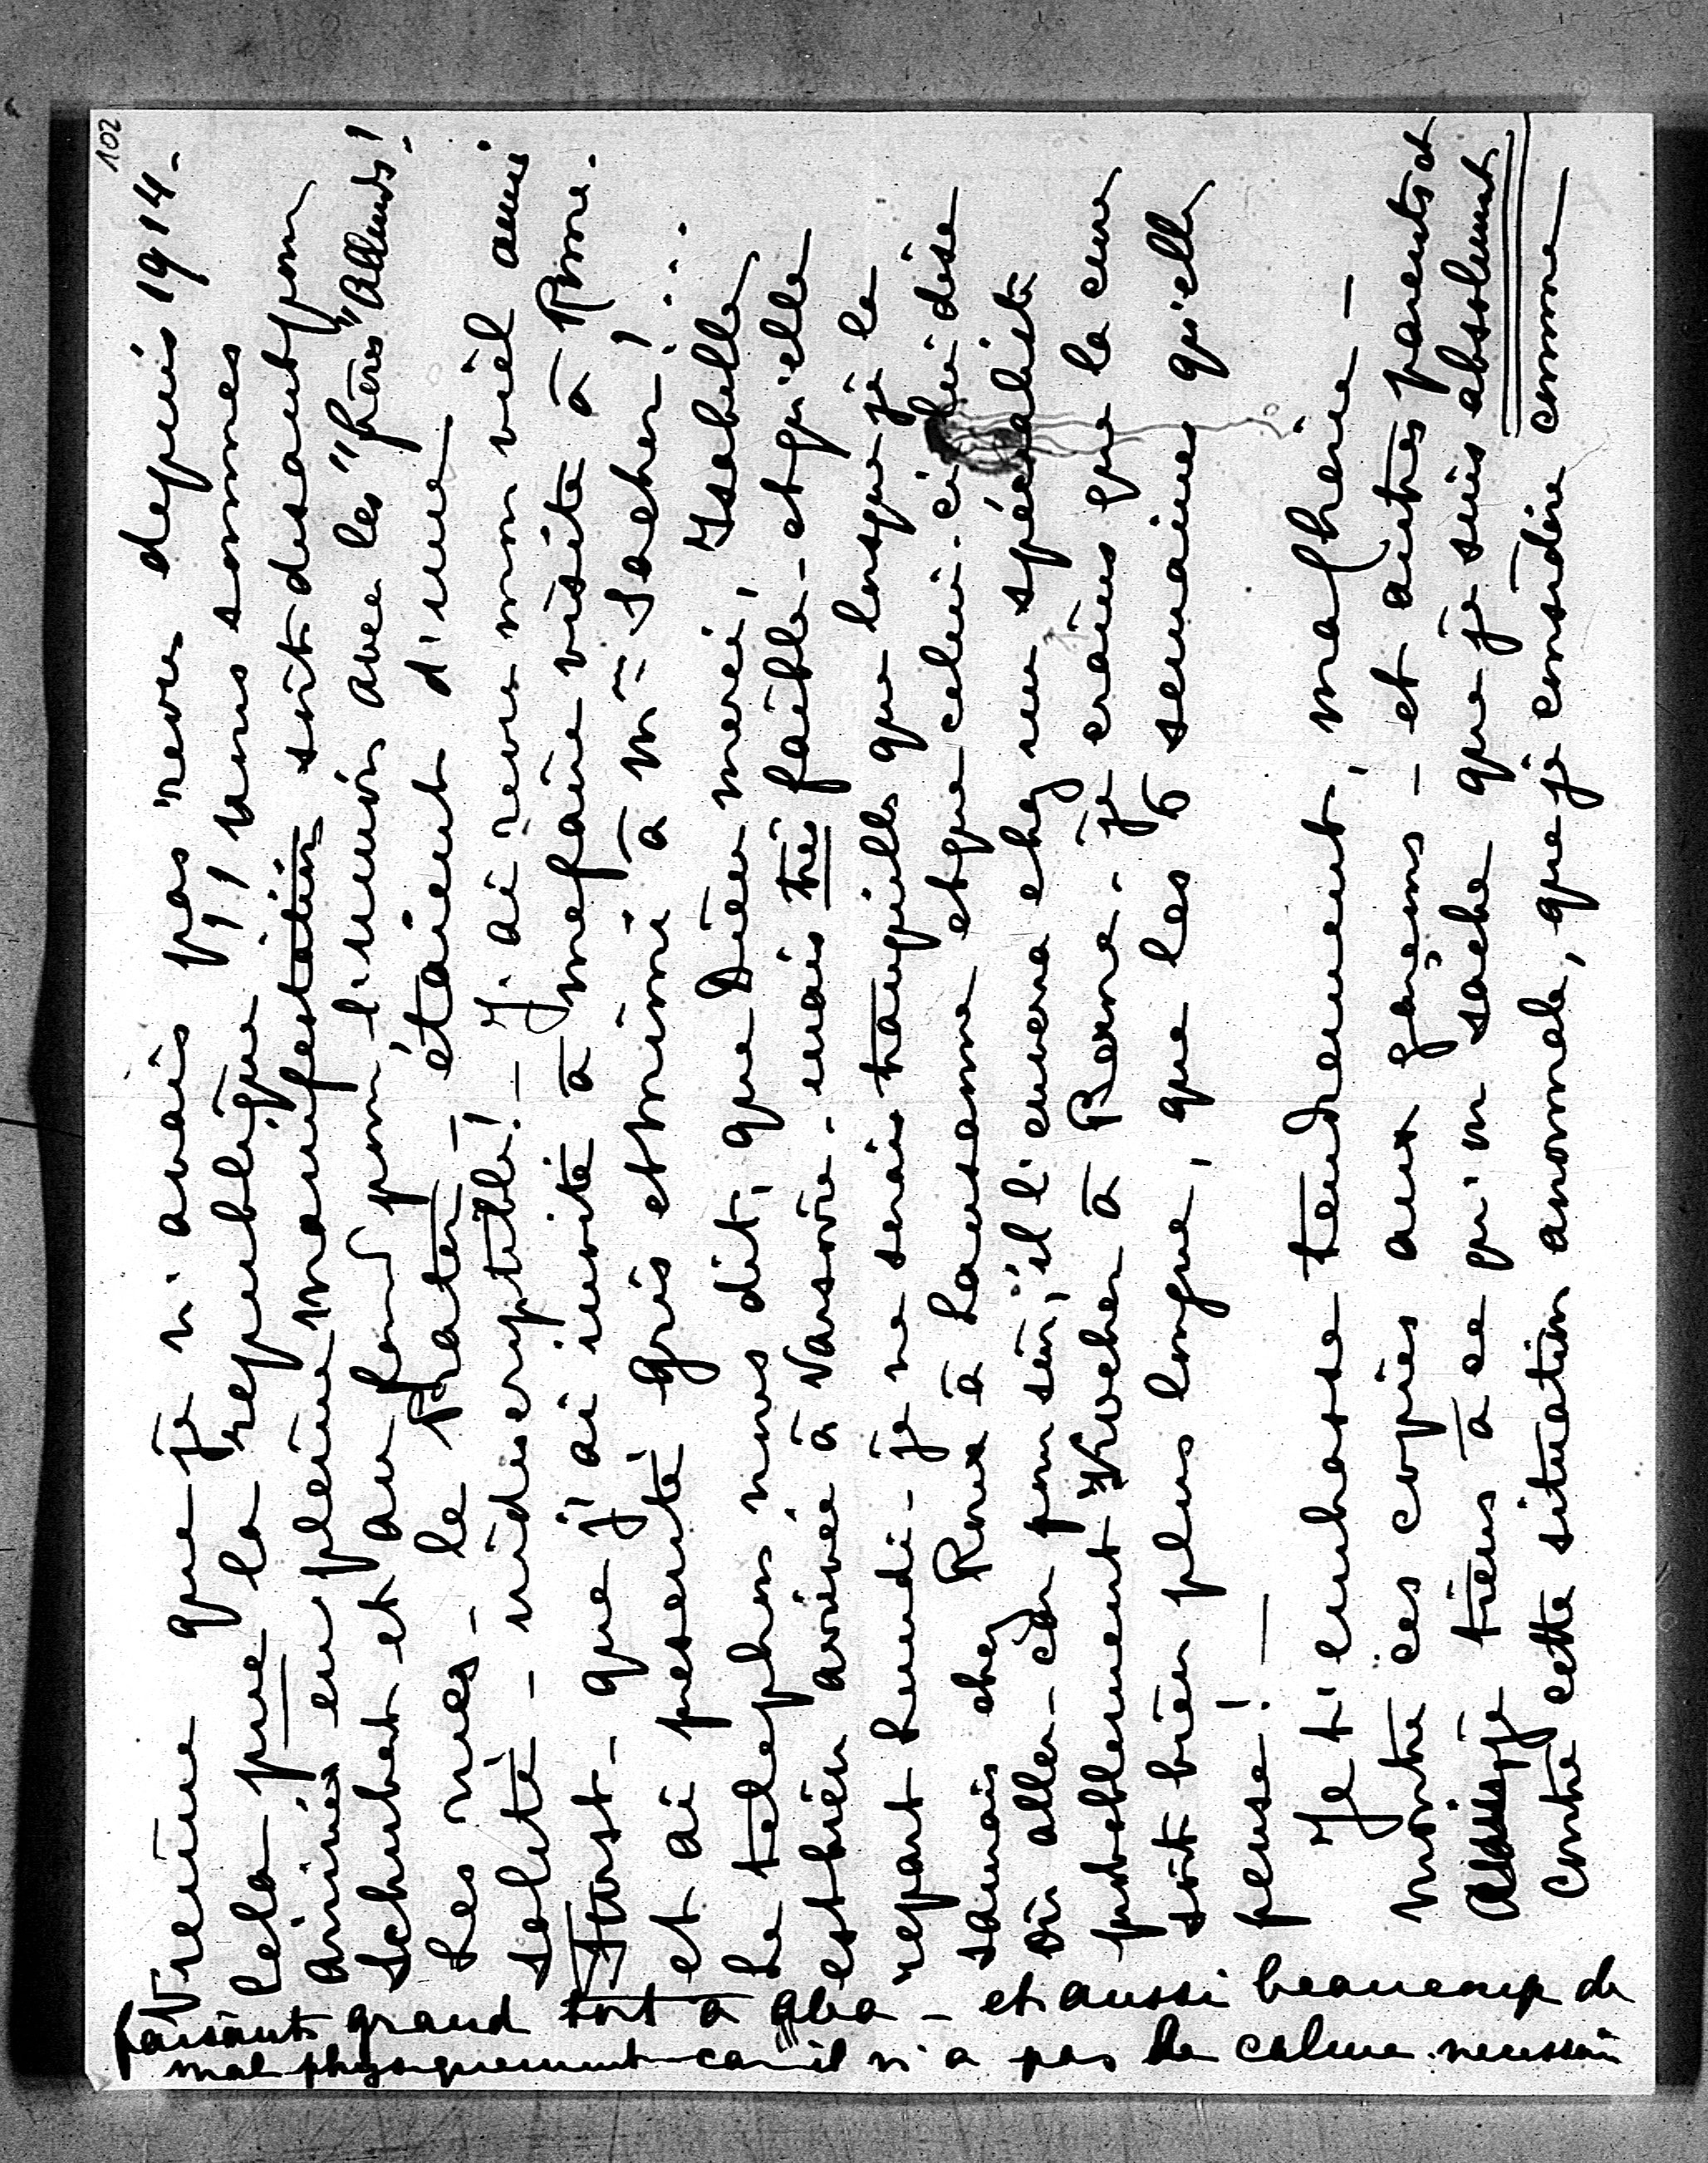 102
Vienne que je n'avais pas revu depuis 1914.
Cela pue la republique!! nous sommes
arrivés en pleine manifestation soit-disant pour
Schubert et au fond pour l'union avec les "frères" Allmds!
Les rues - le Prater - étaient d'une
saleté - indiscryptible! - J'ai revu mon vièl ami
Fürst - que j'ai invité à me faire visite à Rome.
et ai presenté Gris et Mimi à Mme Sacher! ...
Le telephon nous dit, que Dieu merci, Isabelle
est bien arrivée à Varsovie - mais très faible - et qu'elle
repart Lundi - je ne serais tranquille que lorsque je la
saurais chez Roux à Lausanne et que celui-ci lui dise
où aller - car pour sûr, il l'enverra chez un spécialiste
probablement Kocher à Berne - je crains que la cure
soit bien plus longue, que les 6 semaines qu'elle
pense! —
Je t'embrasse tendrement, ma chérie -
Montre ces copies aux garçons - et autres parents et
je tiens à ce qu'on sache que je suis absolument
contre cette situation anormale, que je considère comme
faisant grand tort à - et aussi beaucoup de
mal physiquement car il n'a pas le calme